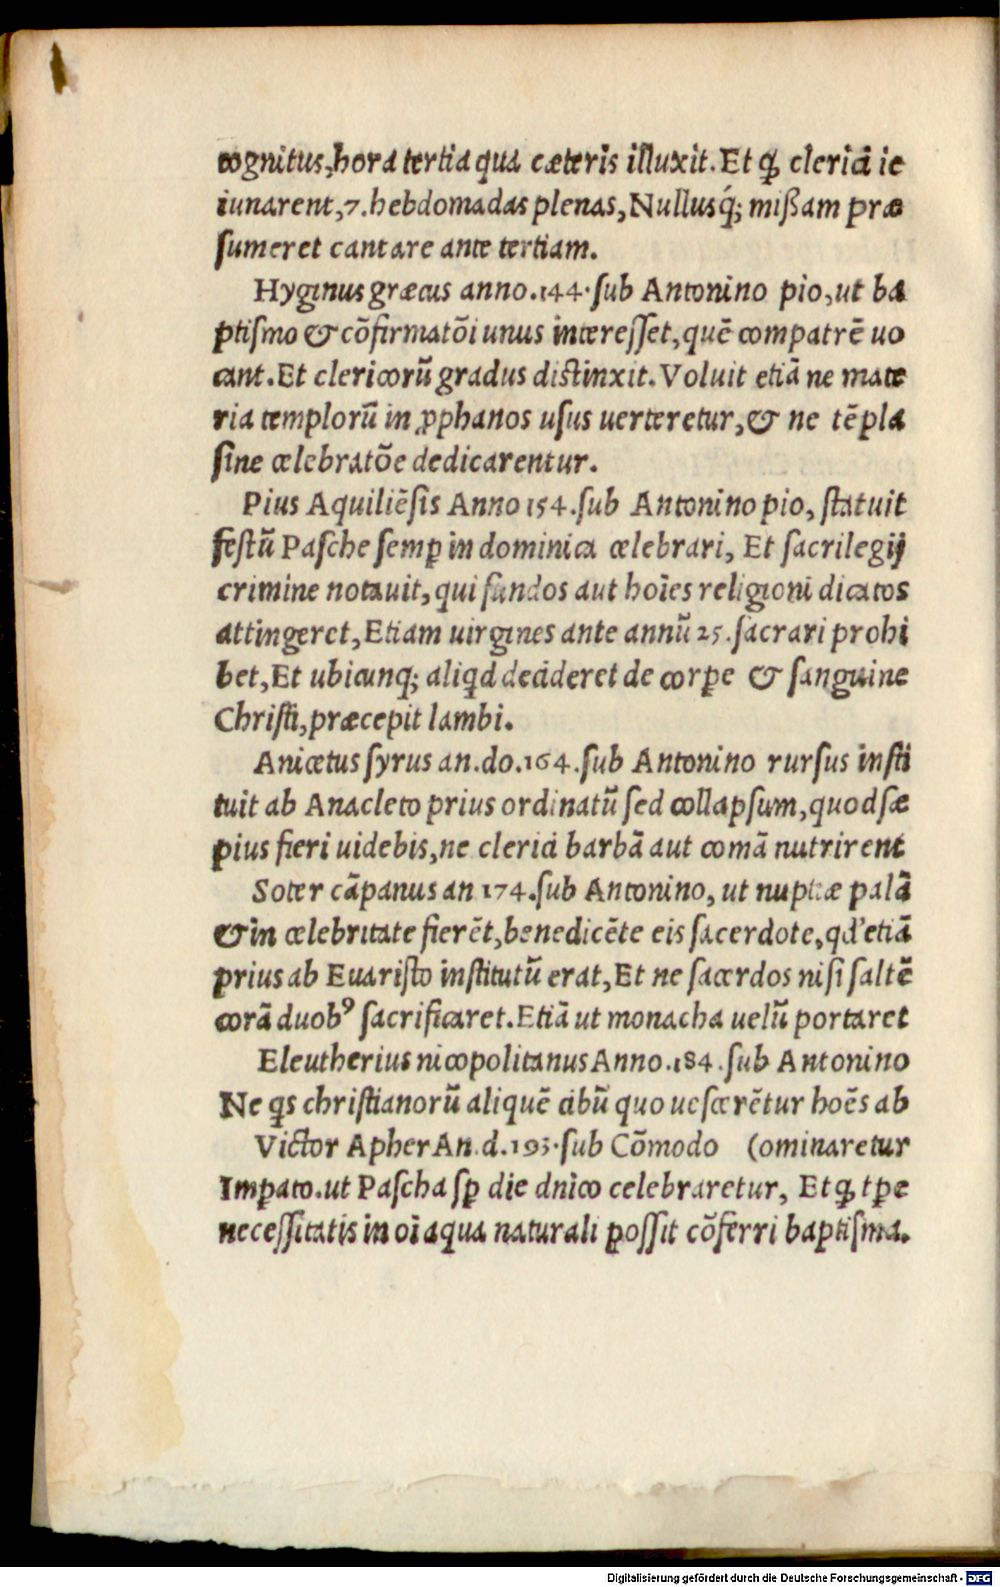 cognitus, hora tertia qua cæteris illuxit. Et ꝙ clerici ie
iunarent, 7. hebdomadas plenas, Nullusq́; mißam præ
sumeret cantare ante tertiam.
Hyginus græcus anno. 144. sub Antonino pio, ut ba
ptismo & cõfirmatõi unus interesset, quẽ compatrẽ uo
cant. Et clericorũ gradus distinxit. Voluit etiã ne mate
ria templorũ in ꝓphanos usus uerteretur, & ne tẽpla
sine celebratõe dedicarentur.
Pius Aquiliẽsis Anno 154. sub Antonino pio, statuit
festũ Pasche semꝑ in dominica celebrari, Et sacrilegij
crimine notauit, qui fundos aut hoĩes religioni dicatos
attingeret, Etiam uirgines ante annũ 25. sacrari prohi
bet, Et ubicunq; aliqd decideret de corꝑe & sanguine
Christi, præcepit lambi.
Anicetus syrus an. do. 164. sub Antonino rursus insti
tuit ab Anacleto prius ordinatũ sed collapsum, quod sæ
pius fieri uidebis, ne clerici barbã aut comã nutrirent
Soter cãpanus an 174. sub Antonino, ut nuptiæ palã
& in celebritate fierẽt, benedicẽte eis sacerdote, qd' etiã
prius ab Euaristo institutũ erat, Et ne sacerdos nisi saltẽ
corã duobꝰ sacrificaret. Etiã ut monacha uelũ portaret
Eleutherius nicopolitanus Anno. 184. sub Antonino
Ne qs christianorũ aliquẽ cibũ quo uescerẽtur hoẽs ab
Victor Apher An. d. 193. sub Cõmodo (ominaretur
Imꝑato. ut Pascha sꝑ die dnico celebraretur, Et ꝙ tꝑe
necessitatis in oĩ aqua naturali possit cõferri baptisma.
Digitalisierung gefördert durch die Deutsche Forschungsgemeinschaft - DFG